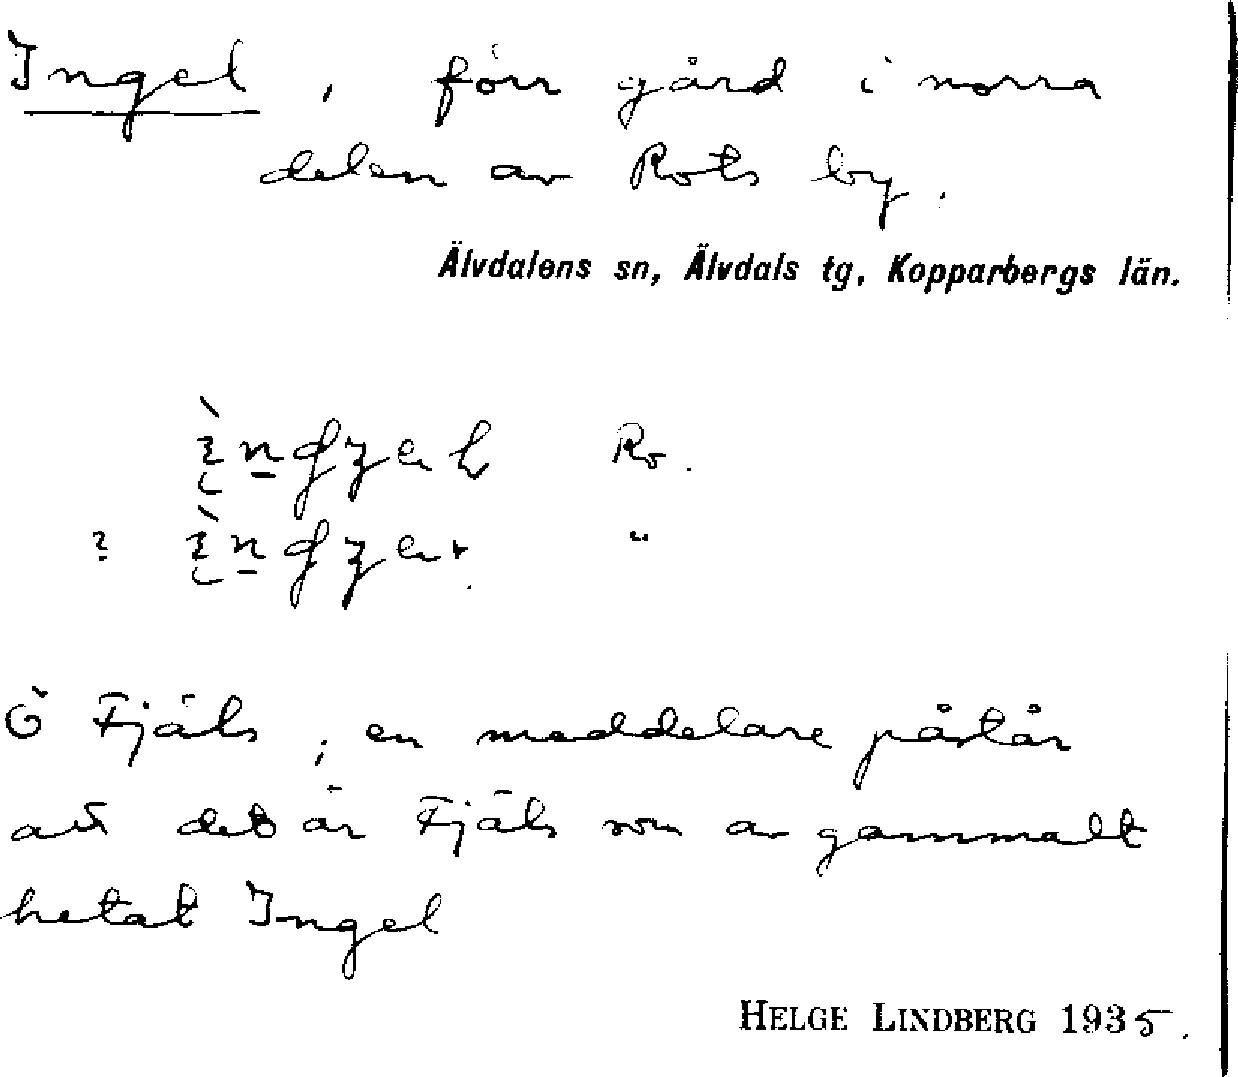 Ingel, förr gård i norra
delen av Rots by.
Älvdalens sn, Älvdals tg, Kopparbergs län.
Ro.
? "
Ö Fjäls; en meddelare påstår
att det är Fjäls som av gammalt
hetat Ingel
HELGE LINDBERG 1935.